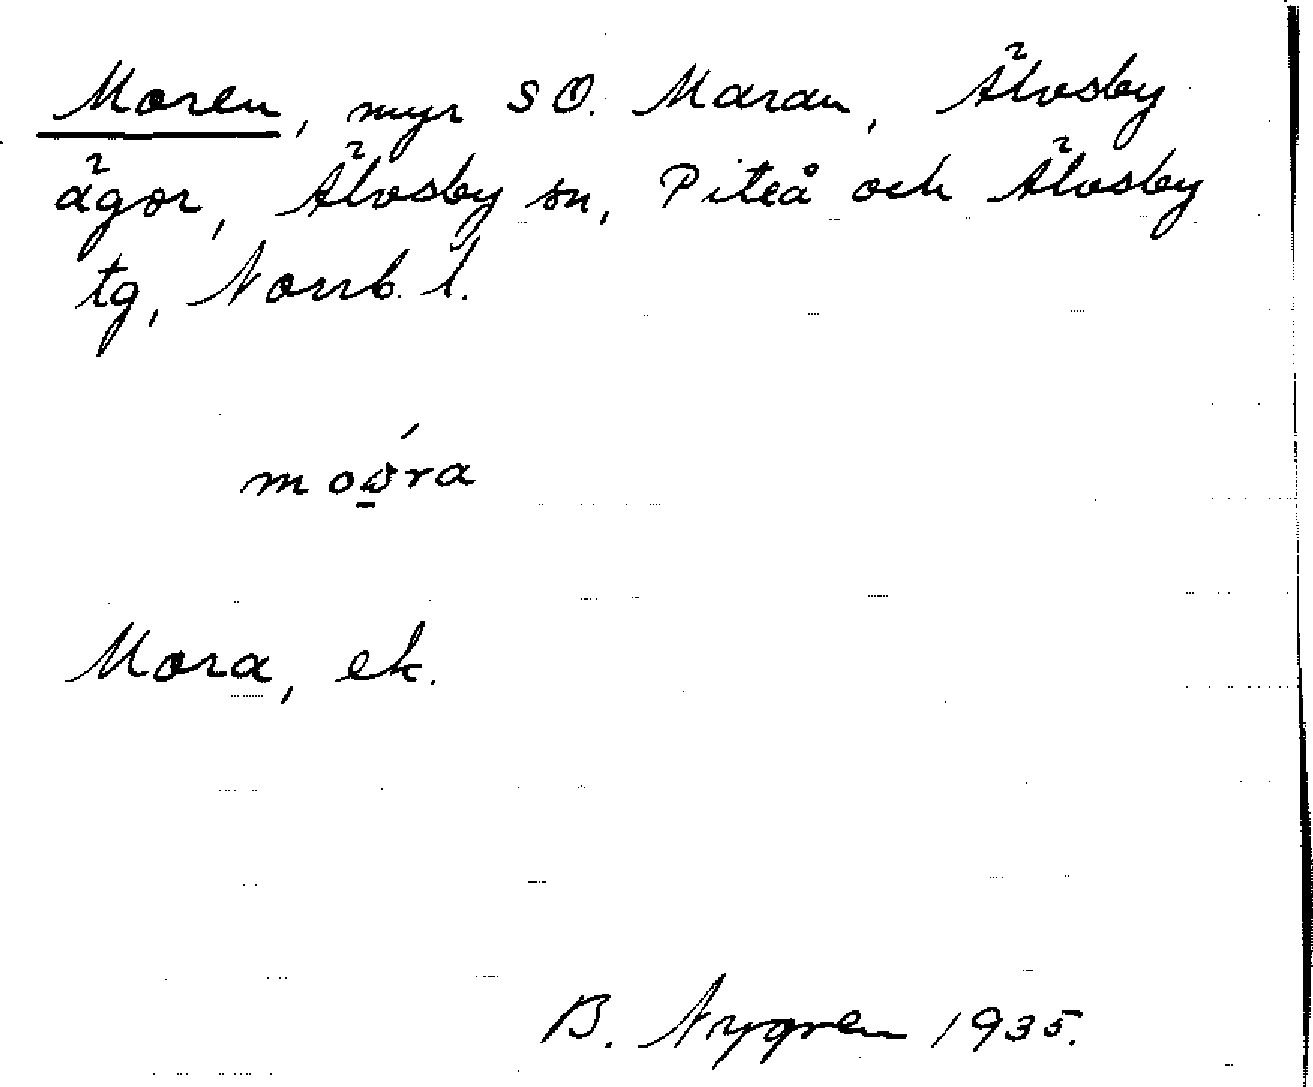 Moren, myr SO. Maran, Älvsby
ägor, Älvsby sn, Piteå och Älvsby
tg, Norrb. l.
Mora, ek.
B. Nygren 1935.